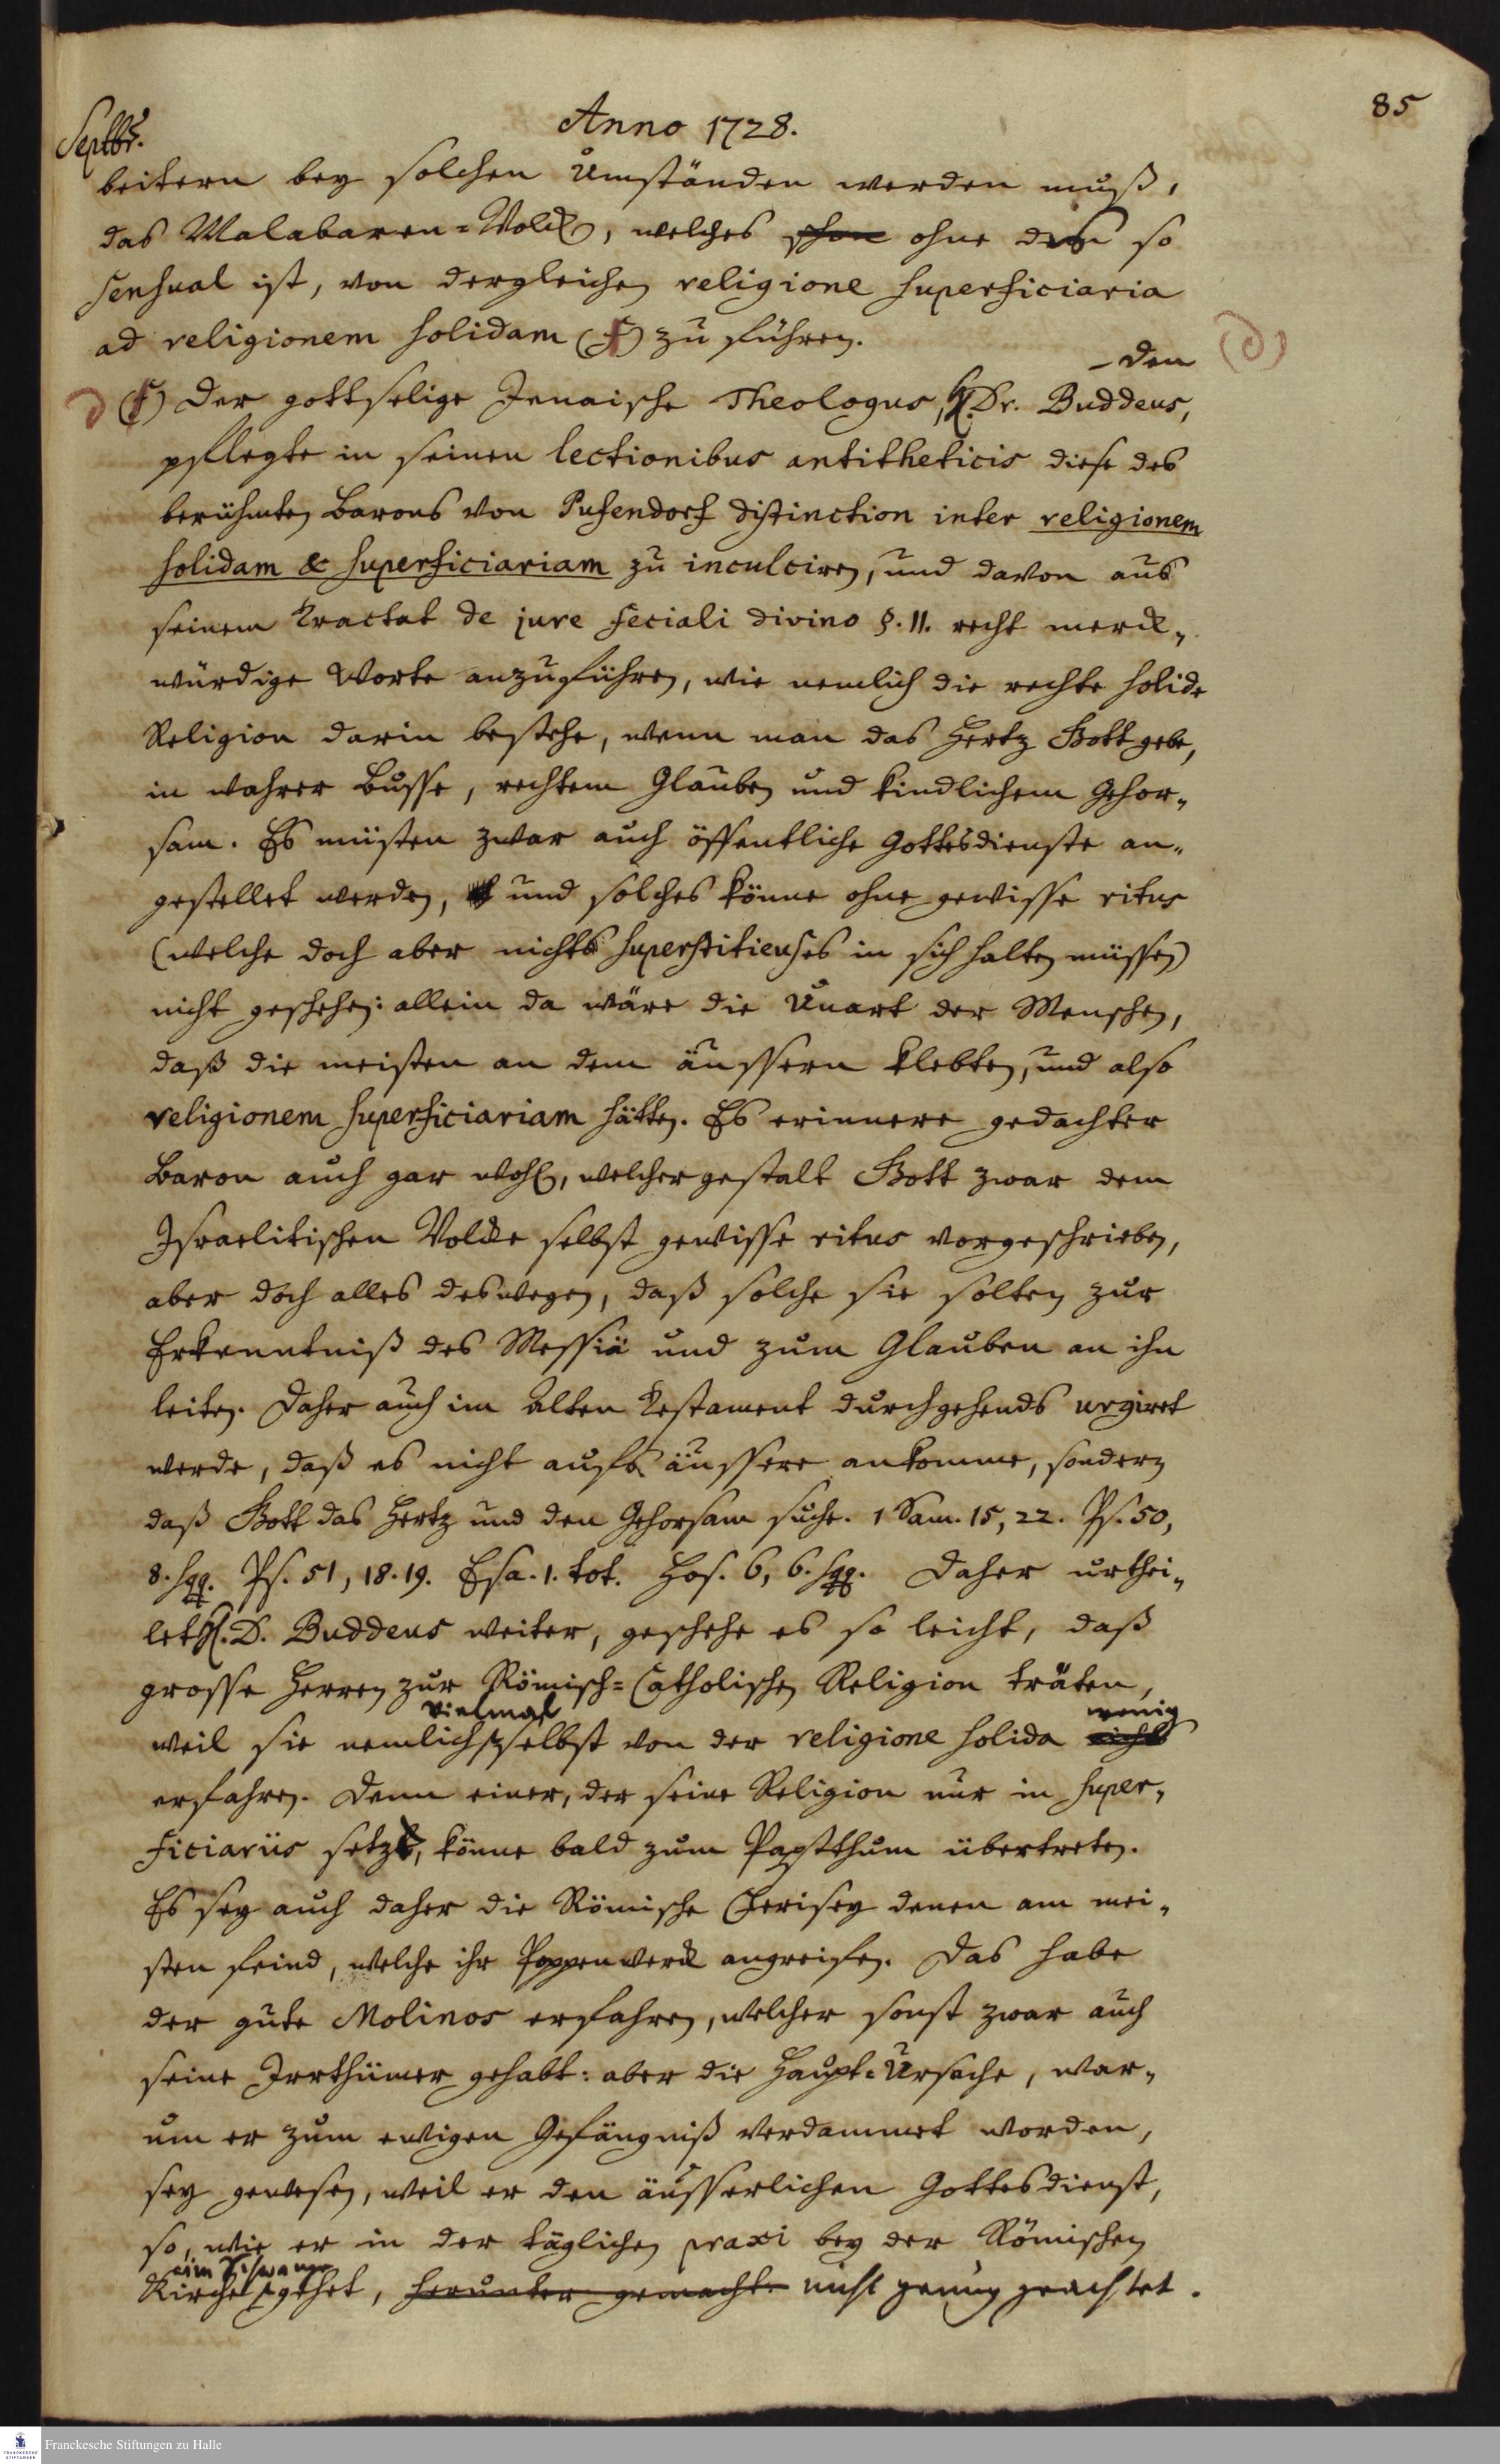 85
Anno 1728.
Septbr.
beitern bey solchen Umständen werden muß,
das Malabaren-Volck, welches schon ohne dem so
sensual ist, von dergleichen religione superficiaria
ad religionem solidam (f) zu führen.
- den
(f) Der gottselige Jenaische Theologus, H. Dr. Buddeus,
pflegte in seinen lectionibus antitheticis diese des
berühmten Barons von Pufendorf distinction inter religionem
solidam & superficiariam zu inculciren, und davon aus
seinem Tractat de jure feciali divino §. 11. recht merck-
würdige Worte anzuführen, wie nemlich die rechte solide
Religion darin bestehe, wenn man das Hertz Gott gebe,
in wahrer Busse, rechtem Glauben und kindlichem Gehor-
sam. Es müsten zwar auch öffentliche Gottesdienste an-
gestellet werden, und solches könne ohne gewisse ritus
(welche doch aber nichts superstitieuses in sich halten müssen)
nicht geschehen: allein da wäre die Unart der Menschen,
daß die meisten an dem äussern klebten, und also
religionem superficiariam hätten. Es erinnere gedachter
Baron auch gar wohl, welchergestalt Gott zwar dem
Israelitischen Volcke selbst gewisse ritus vorgeschrieben,
aber doch alles deswegen, daß solche sie solten zur
Erkenntniß des Messiä und zum Glauben an ihn
leiten. Daher auch im Alten Testament durchgehends urgiret
werde, daß es nicht aufs äussere ankomme, sondern
daß Gott das Hertz und den Gehorsam suche. 1 Sam. 15, 22. Ps. 50,
8. sqq. Ps. 51, 18. 19. Esa. 1. tot. Hos. 6, 6. sqq. Daher urthei-
let H. D. Buddeus weiter, geschehe es so leicht, daß
grosse Herren zur Römisch-Catholischen Religion träten,
vielmal wenig
weil sie nemlich selbst von der religione solida nichts
erfahren. Denn einer, der seine Religion nur in super-
ficiariis setzt, könne bald zum Papstthum übertreten.
Es sey auch daher die Römische Clerisey denen am mei-
sten feind, welche ihr Poppenwerck angreifen. Das habe
der gute Molinos erfahren, welcher sonst zwar auch
seine Irrthümer gehabt: aber die Haupt-Ursache, war-
um er zum ewigen Gefängniß verdammet worden,
sey gewesen, weil er den äusserlichen Gottesdienst,
so, wie er in der täglichen praxi bey der Römischen
im Schwange
Kirche gehet, herunter gemacht. nicht genug geachtet.
Franckesche Stiftungen zu Halle